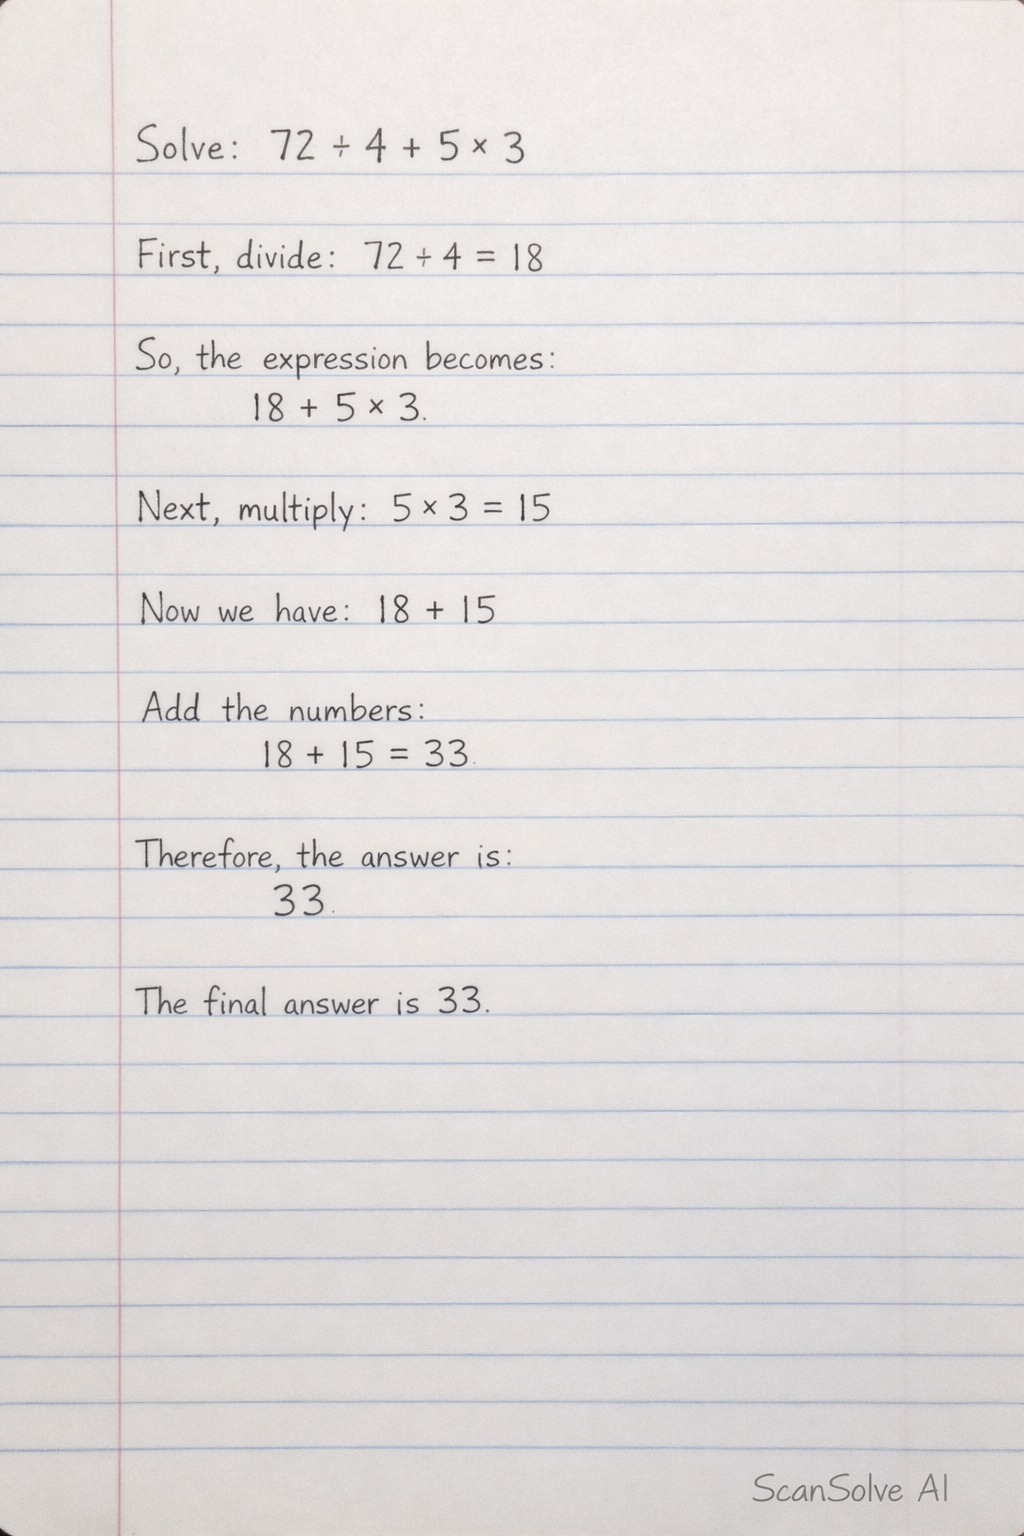 Solve: 72 ÷ 4 + 5 × 3
First, divide: 72 ÷ 4 = 18
So, the expression becomes:
18 + 5 × 3.
Next, multiply: 5 × 3 = 15
Now we have: 18 + 15
Add the numbers:
18 + 15 = 33.
Therefore, the answer is:
33.
The final answer is 33.
ScanSolve AI